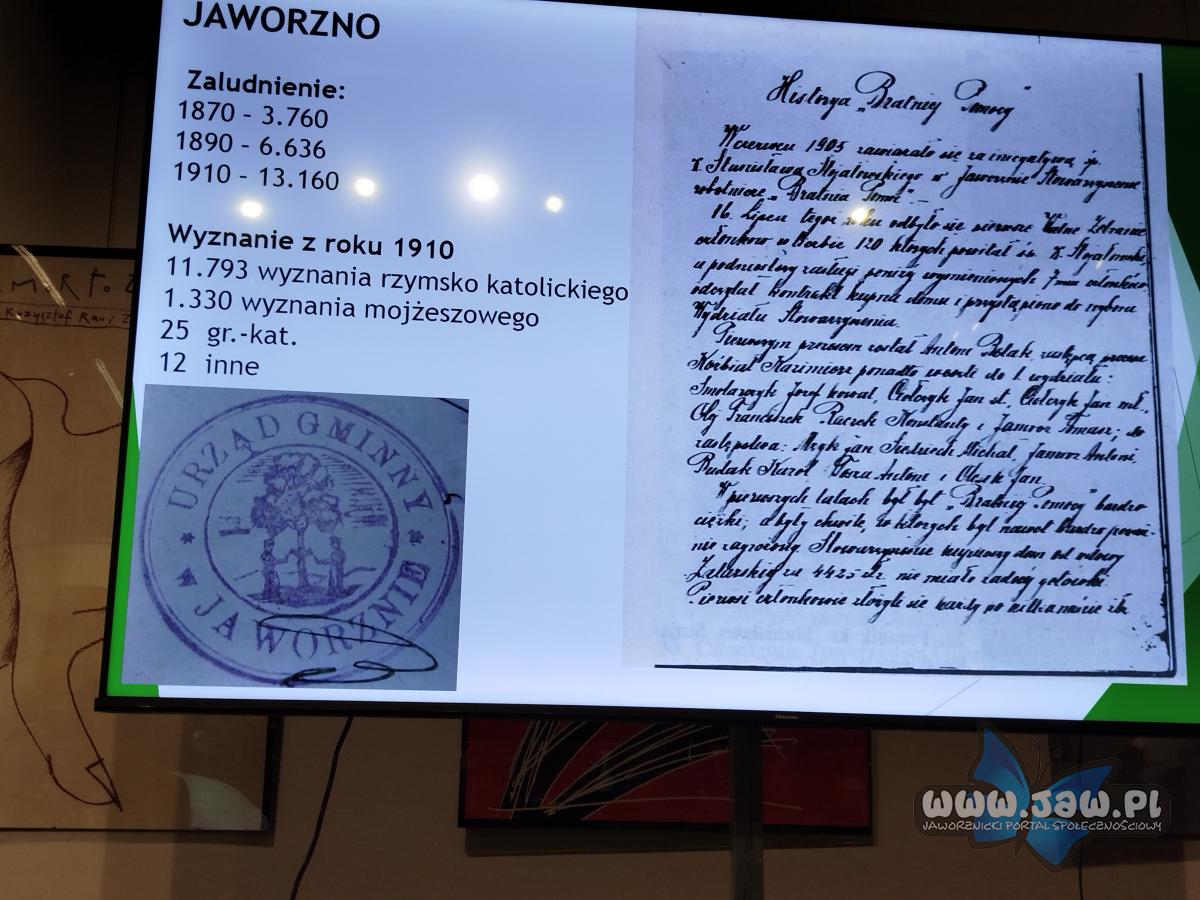 JAWORZNO
Zaludnienie:
1870 - 3.760
1890 - 6.636
1910 - 13.160
Wyznanie z roku 1910
11.793 wyznania rzymsko katolickiego
1.330 wyznania mojżeszowego
25 gr.-kat.
12 inne
URZĄD GMINNY
W JAWORZNIE
Historya „Bratniej Pomocy"
W czerwcu 1905 zawiązało się za inicjatywą śp.
X. Stanisława Stojałowskiego w Jaworznie Stowarzyszenie
robotnicze „Bratnia Pomoc".—
16. Lipca tegoż roku odbyło się pierwsze Walne Zebranie
członków w liczbie 120 których powitał śp. X. Stojałowski
a podniósłszy zasługi poniżej wymienionych 7miu członków
odczytał kontrakt kupna domu i przystąpiono do wyboru
Wydziału Stowarzyszenia.
Pierwszym prezesem został Antoni zastępcą prezesa
Kazimierz ponadto weszli do 1. wydziału:
Smolarczyk Józef kowal, Ciołczyk Jan st., Ciołczyk Jan mł.,
Franciszek Raczek Konstanty i Jamroz Tomasz; do
zastępstwa: Jan Michał, Jamroz Antoni,
Dudak Karol Antoni i Jan.
W pierwszych latach był byt „Bratniej Pomocy" bardzo
ciężki, a były chwile, w których był nawet bardzo poważ-
nie zagrożony. Stowarzyszenie kupiwszy dom od wdowy
za 4425 Zł. nie miało żadnej gotówki.
Pierwsi członkowie złożyli się każdy po kilkanaście zł.
Hisense
Krzysztof
www.jaw.pl
JAWORZNICKI PORTAL SPOŁECZNOŚCIOWY